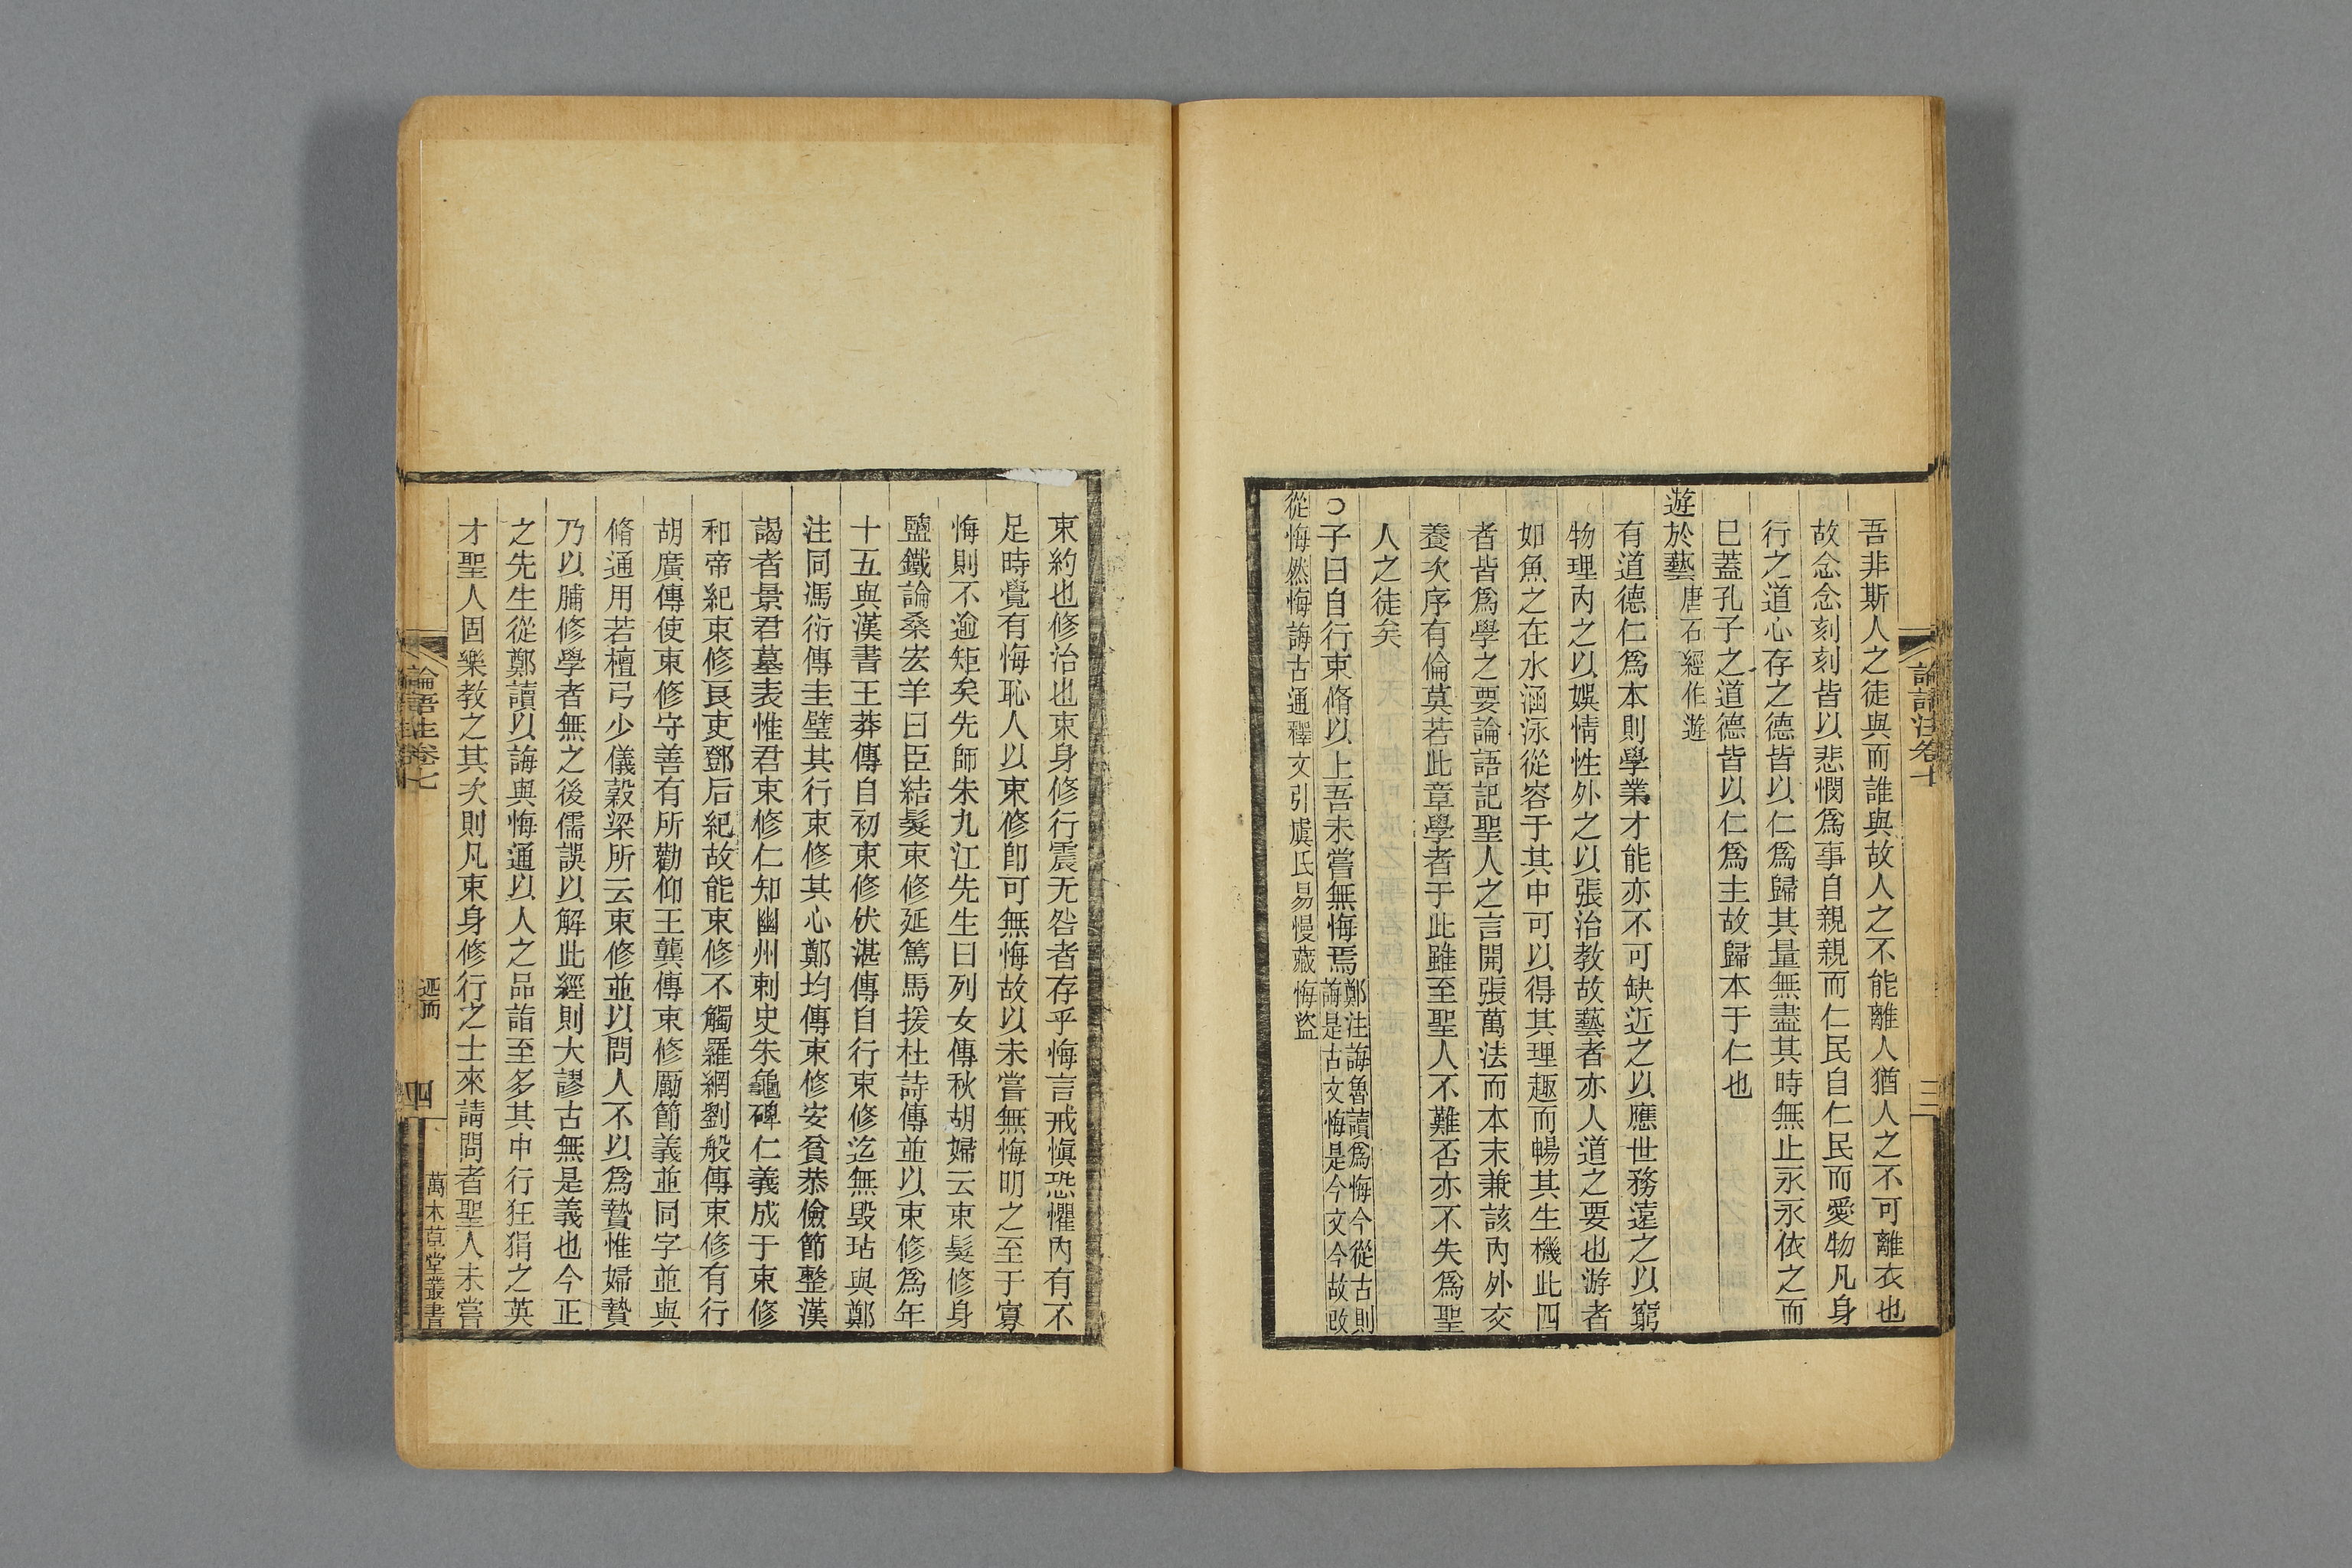 吾非斯人之徒與而誰與故人之不能離人猶人之不可離衣也
故念念刻刻皆以悲憫爲事自親親而仁民自仁民而愛物凡身
行之道心存之德皆以仁爲歸其量無盡其時無止永永依之而
巳蓋孔子之道德皆以仁爲主故歸本于仁也
遊於藝唐石經作遊
有道德仁爲本則學業才能亦不可缺近之以應世務遠之以窮
物理內之以娛情性外之以張治教故藝者亦人道之要也游者
如魚之在水涵泳從容于其中可以得其理趣而暢其生機此四
者皆爲學之要論語記聖人之言開張萬法而本末兼該內外交
養次序有倫莫若此章學者于此雖至聖人不難否亦不失爲聖
人之徒矣
○子曰自行束脩以上吾未嘗無悔焉鄭注誨魯讀爲悔今從古則
誨是古文悔是今文今故改
從悔然悔誨古通釋文引虞氏易慢藏悔盜
論語注卷七
三
束約也修治也束身修行震无咎者存乎悔言戒愼恐懼內有不
足時覺有悔恥人以束修卽可無悔故以未嘗無悔明之至于寡
悔則不逾矩矣先師朱九江先生曰列女傳秋胡婦云束髮修身
鹽鐵論桑宏羊曰臣結髮束修延篤馬援杜詩傳並以束修爲年
十五與漢書王莽傳自初束修伏湛傳自行束修迄無毀玷與鄭
注同馮衍傳圭璧其行束修其心鄭均傳束修安貧恭儉節整漢
謁者景君墓表惟君束修仁知幽州刺史朱龜碑仁義成于束修
和帝紀束修良吏鄧后紀故能束修不觸羅網劉般傳束修有行
胡廣傳使束修守善有所勸仰王龔傳束修厲節義並同字並與
脩通用若檀弓少儀穀梁所云束修並以問人不以爲贄惟婦贄
乃以脯修學者無之後儒誤以解此經則大謬古無是義也今正
之先生從鄭讀以誨與悔通以人之品詣至多其中行狂狷之英
才聖人固樂教之其次則凡束身修行之士來請問者聖人未嘗
論語注卷七
述而
四
萬木草堂叢書